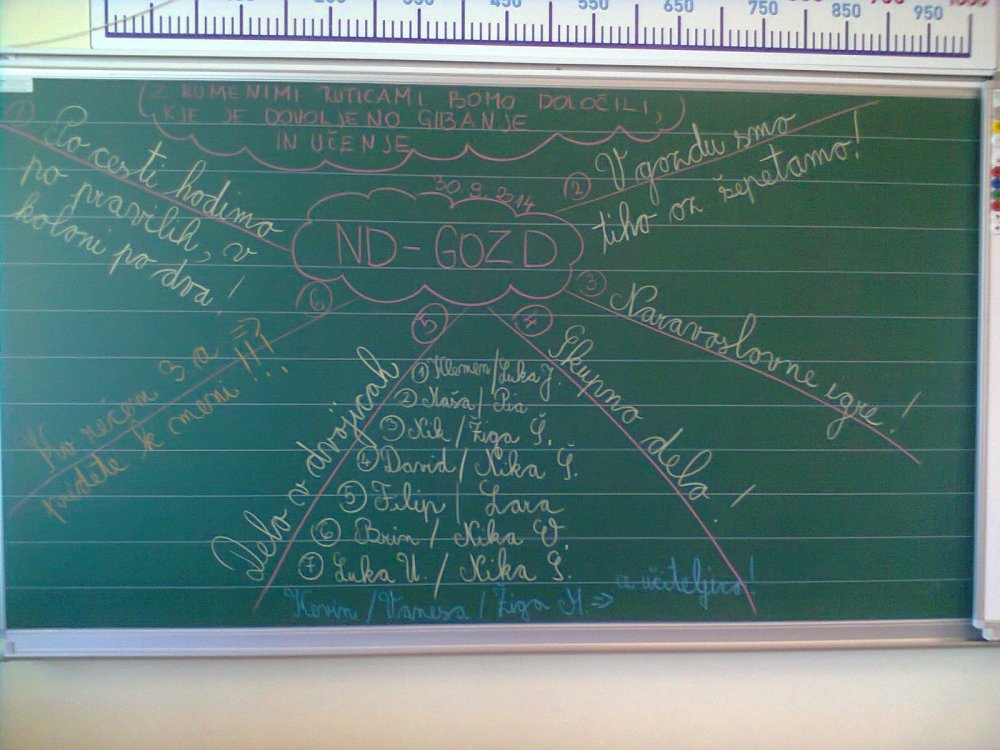 250
350
450
550
650
750
850
950
Z RUMENIMI RUTICAMI BOMO DOLOČILI,
KJE JE DOVOLJENO GIBANJE
IN UČENJE
30.9.2014
ND - GOZD
① Po cesti hodimo
po pravilih, v
koloni po dva!
② V gozdu smo
tiho oz. šepetamo!
③ Naravoslovne igre!
④ Skupno delo!
⑤ Delo v dvojicah
① Klemen / Luka J.
② Maša / Pia
③ Nik / Žiga Š.
④ David / Nika Š.
⑤ Filip / Lara
⑥ Brin / Nika V.
⑦ Luka U. / Nika Š.
Kevin / Vanessa / Žiga M => z učiteljico!
⑥ Ko rečem 3.a
pridete k meni !!!